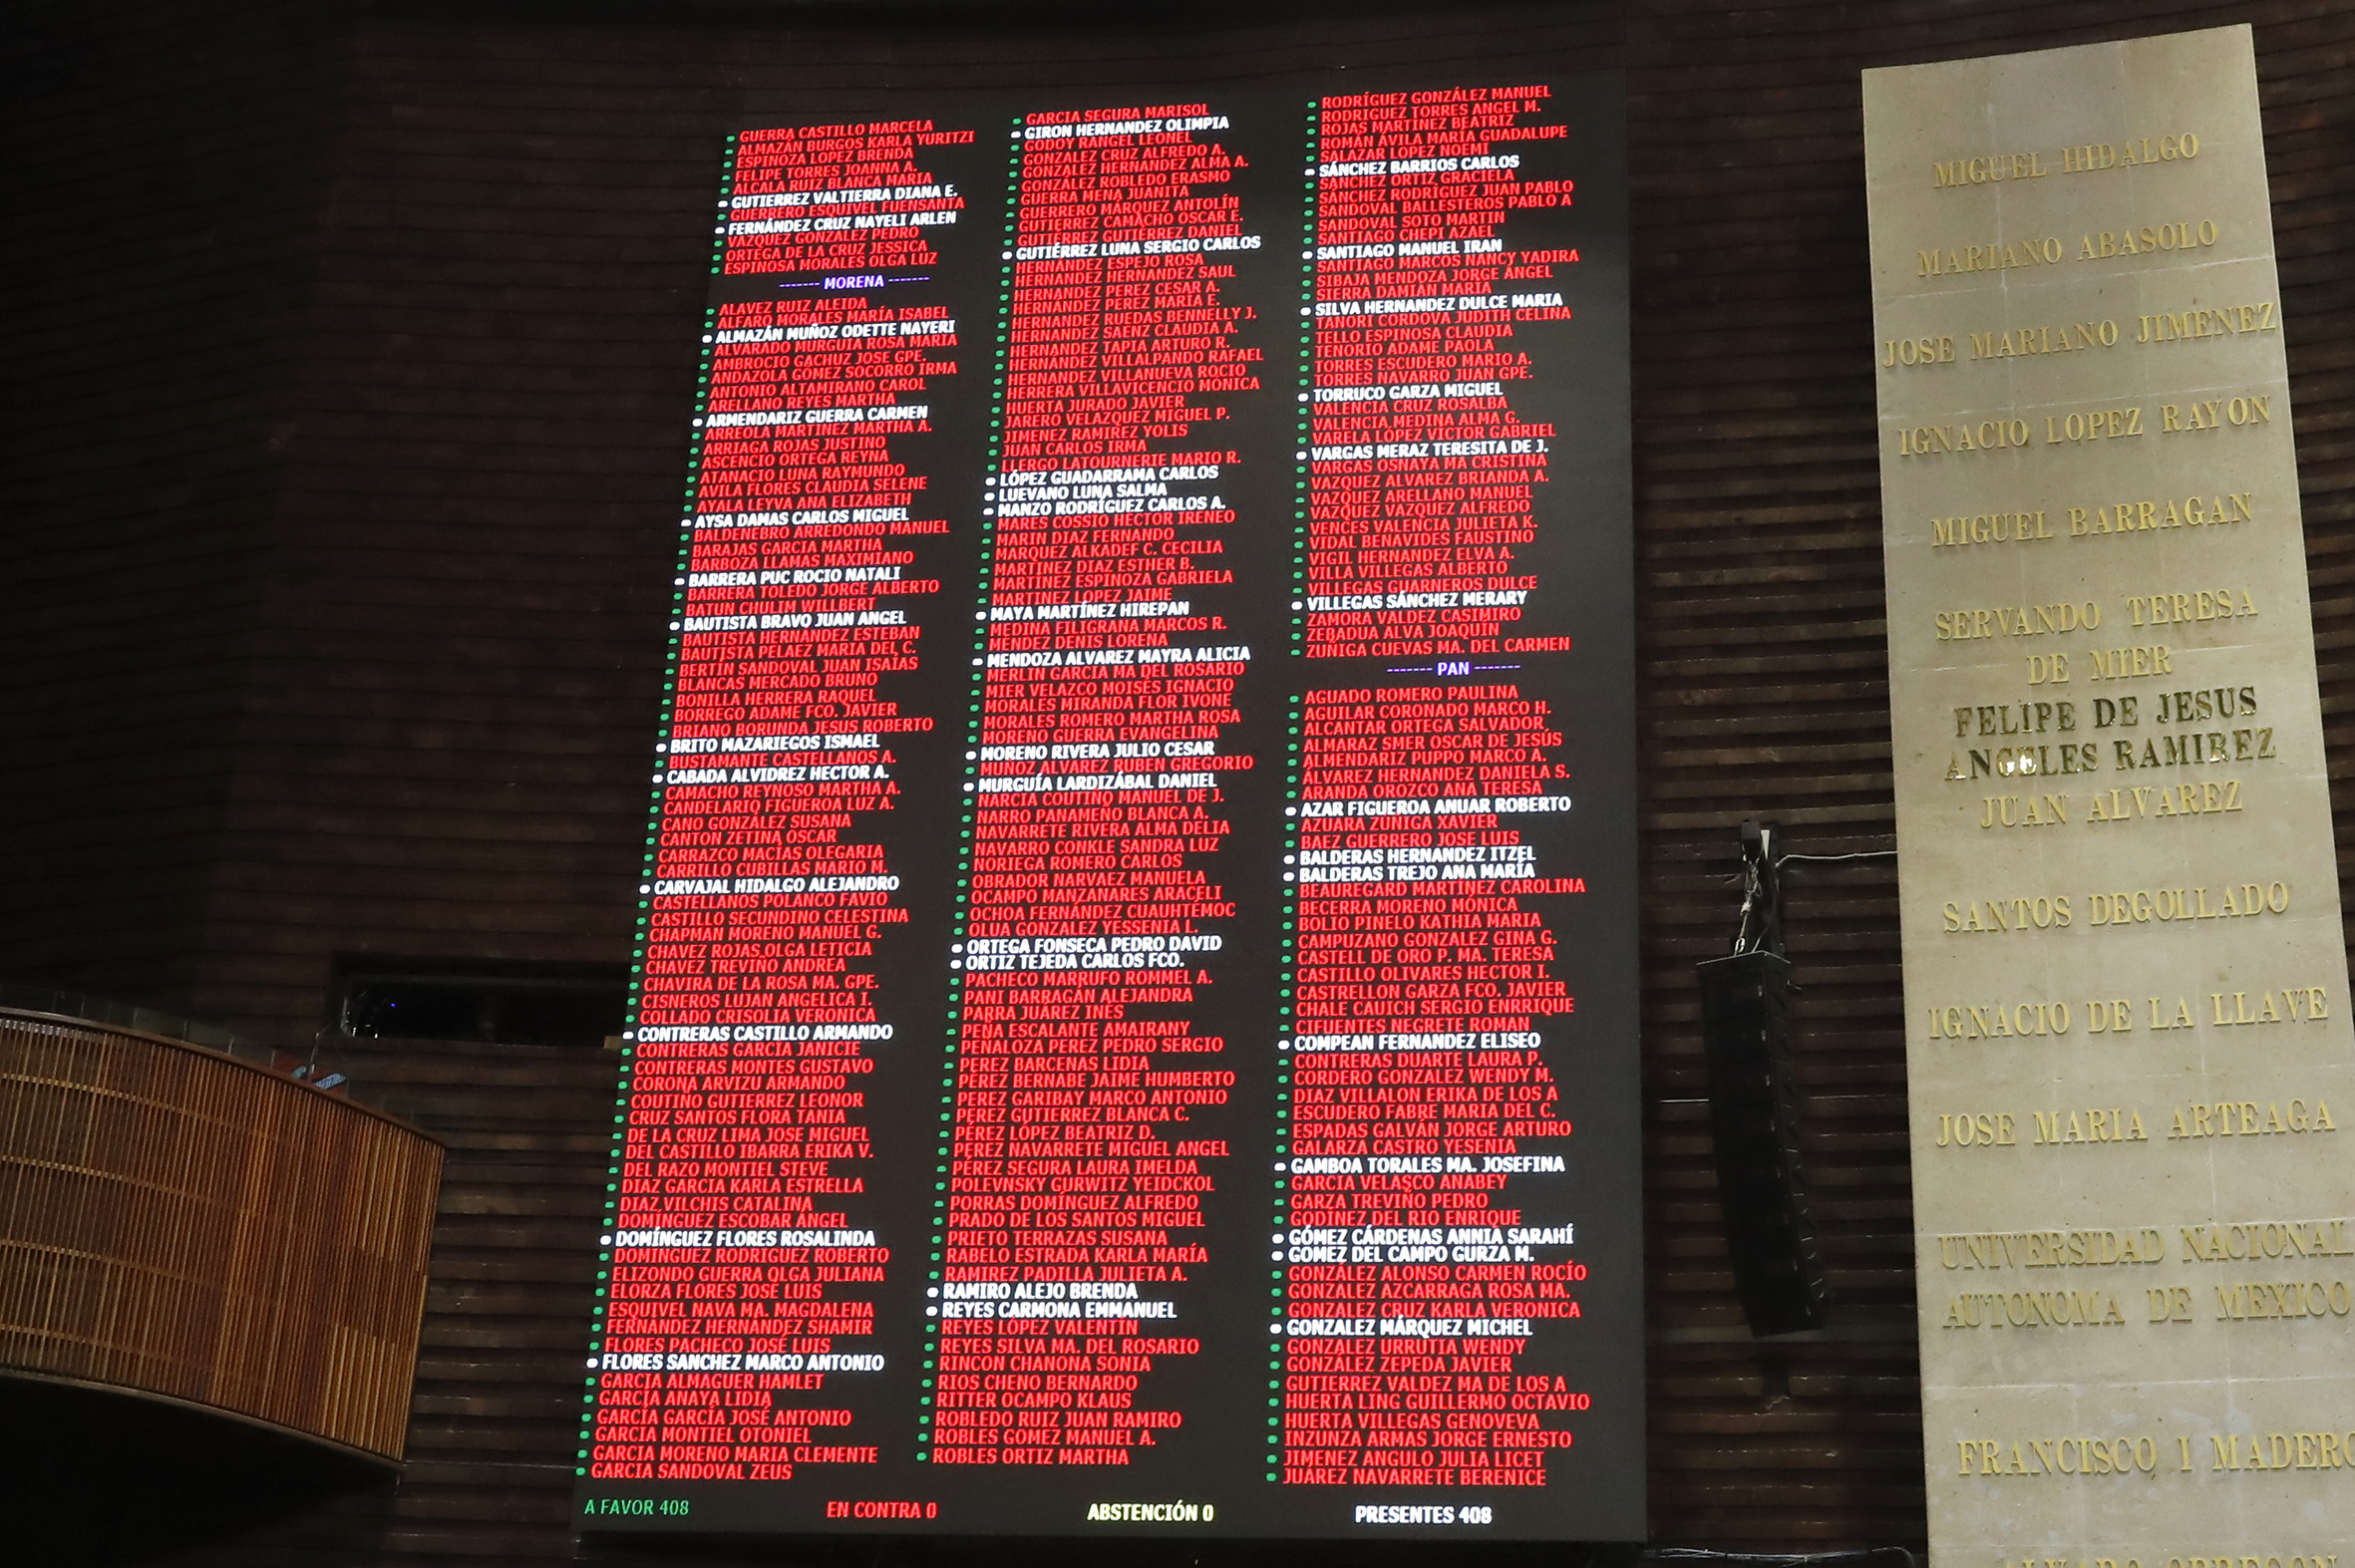 GUERRA CASTILLO MARCELA
ALMAZÁN BURGOS KARLA YURITZI
ESPINOZA LOPEZ BRENDA
FELIPE TORRES JOANNA A.
ALCALA RUIZ BLANCA MARIA
GUTIERREZ VALTIERRA DIANA E.
GUERRERO ESQUIVEL FUENSANTA
FERNÁNDEZ CRUZ NAYELI ARLEN
VAZQUEZ GONZALEZ PEDRO
ORTEGA DE LA CRUZ JESSICA
ESPINOSA MORALES OLGA LUZ
------- MORENA -------
ALAVEZ RUIZ ALEIDA
ALFARO MORALES MARÍA ISABEL
ALMAZÁN MUÑOZ ODETTE NAYERI
ALVARADO MURGUIA ROSA MARIA
AMBROCIO GACHUZ JOSE GPE.
ANDAZOLA GÓMEZ SOCORRO IRMA
ANTONIO ALTAMIRANO CAROL
ARELLANO REYES MARTHA
ARMENDARIZ GUERRA CARMEN
ARREOLA MARTINEZ MARTHA A.
ARRIAGA ROJAS JUSTINO
ASCENCIO ORTEGA REYNA
ATANACIO LUNA RAYMUNDO
AVILA FLORES CLAUDIA SELENE
AYALA LEYVA ANA ELIZABETH
AYSA DAMAS CARLOS MIGUEL
BALDENEBRO ARREDONDO MANUEL
BARAJAS GARCIA MARTHA
BARBOZA LLAMAS MAXIMIANO
BARRERA PUC ROCIO NATALI
BARRERA TOLEDO JORGE ALBERTO
BATUN CHULIM WILLBERT
BAUTISTA BRAVO JUAN ANGEL
BAUTISTA HERNÁNDEZ ESTEBAN
BAUTISTA PELAEZ MARIA DEL C.
BERTÍN SANDOVAL JUAN ISAÍAS
BLANCAS MERCADO BRUNO
BONILLA HERRERA RAQUEL
BORREGO ADAME FCO. JAVIER
BRIANO BORUNDA JESUS ROBERTO
BRITO MAZARIEGOS ISMAEL
BUSTAMANTE CASTELLANOS A.
CABADA ALVIDREZ HECTOR A.
CAMACHO REYNOSO MARTHA A.
CANDELARIO FIGUEROA LUZ A.
CANO GONZÁLEZ SUSANA
CANTON ZETINA OSCAR
CARRAZCO MACÍAS OLEGARIA
CARRILLO CUBILLAS MARIO M.
CARVAJAL HIDALGO ALEJANDRO
CASTELLANOS POLANCO FAVIO
CASTILLO SECUNDINO CELESTINA
CHAPMAN MORENO MANUEL G.
CHAVEZ ROJAS OLGA LETICIA
CHÁVEZ TREVIÑO ANDREA
CHAVIRA DE LA ROSA MA. GPE.
CISNEROS LUJAN ANGELICA I.
COLLADO CRISOLIA VERÓNICA
CONTRERAS CASTILLO ARMANDO
CONTRERAS GARCIA JANICIE
CONTRERAS MONTES GUSTAVO
CORONA ARVIZU ARMANDO
COUTIÑO GUTIERREZ LEONOR
CRUZ SANTOS FLORA TANIA
DE LA CRUZ LIMA JOSE MIGUEL
DEL CASTILLO IBARRA ERIKA V.
DEL RAZO MONTIEL STEVE
DIAZ GARCIA KARLA ESTRELLA
DIAZ VILCHIS CATALINA
DOMÍNGUEZ ESCOBAR ANGEL
DOMÍNGUEZ FLORES ROSALINDA
DOMÍNGUEZ RODRIGUEZ ROBERTO
ELIZONDO GUERRA OLGA JULIANA
ELORZA FLORES JOSE LUIS
ESQUIVEL NAVA MA. MAGDALENA
FERNÁNDEZ HERNÁNDEZ SHAMIR
FLORES PACHECO JOSÉ LUIS
FLORES SANCHEZ MARCO ANTONIO
GARCIA ALMAGUER HAMLET
GARCÍA ANAYA LIDIA
GARCÍA GARCÍA JOSÉ ANTONIO
GARCIA MONTIEL OTONIEL
GARCIA MORENO MARIA CLEMENTE
GARCIA SANDOVAL ZEUS
GARCIA SEGURA MARISOL
GIRON HERNANDEZ OLIMPIA
GODOY RANGEL LEONEL
GONZALEZ CRUZ ALFREDO A.
GONZALEZ HERNÁNDEZ ALMA A.
GONZALEZ ROBLEDO ERASMO
GUERRA MENA JUANITA
GUERRERO MÁRQUEZ ANTOLÍN
GUTIERREZ CAMACHO OSCAR E.
GUTIÉRREZ GUTIÉRREZ DANIEL
GUTIÉRREZ LUNA SERGIO CARLOS
HERNÁNDEZ ESPEJO ROSA
HERNANDEZ HERNANDEZ SAUL
HERNANDEZ PEREZ CESAR A.
HERNANDEZ PEREZ MARIA E.
HERNANDEZ RUEDAS BENNELLY J.
HERNANDEZ SAENZ CLAUDIA A.
HERNANDEZ TAPIA ARTURO R.
HERNANDEZ VILLALPANDO RAFAEL
HERNANDEZ VILLANUEVA ROCIO
HERRERA VILLAVICENCIO MÓNICA
HUERTA JURADO JAVIER
JARERO VELAZQUEZ MIGUEL P.
JIMENEZ RAMIREZ YOLIS
JUAN CARLOS IRMA
LLERGO LATOURNERIE MARIO R.
LÓPEZ GUADARRAMA CARLOS
LUEVANO LUNA SALMA
MANZO RODRÍGUEZ CARLOS A.
MARES COSSIO HECTOR IRENEO
MARIN DIAZ FERNANDO
MARQUEZ ALKADEF C. CECILIA
MARTINEZ DIAZ ESTHER B.
MARTÍNEZ ESPINOZA GABRIELA
MARTINEZ LOPEZ JAIME
MAYA MARTÍNEZ HIREPAN
MEDINA FILIGRANA MARCOS R.
MÉNDEZ DENIS LORENA
MENDOZA ALVAREZ MAYRA ALICIA
MERLIN GARCIA MA DEL ROSARIO
MIER VELAZCO MOISÉS IGNACIO
MORALES MIRANDA FLOR IVONE
MORALES ROMERO MARTHA ROSA
MORENO GUERRA EVANGELINA
MORENO RIVERA JULIO CESAR
MUÑOZ ALVAREZ RUBEN GREGORIO
MURGUÍA LARDIZÁBAL DANIEL
NARCIA COUTIÑO MANUEL DE J.
NARRO PANAMEÑO BLANCA A.
NAVARRETE RIVERA ALMA DELIA
NAVARRO CONKLE SANDRA LUZ
NORIEGA ROMERO CARLOS
OBRADOR NARVAEZ MANUELA
OCAMPO MANZANARES ARACELI
OCHOA FERNÁNDEZ CUAUHTÉMOC
OLUA GONZALEZ YESSENIA L.
ORTEGA FONSECA PEDRO DAVID
ORTIZ TEJEDA CARLOS FCO.
PACHECO MARRUFO ROMMEL A.
PANI BARRAGÁN ALEJANDRA
PARRA JUAREZ INES
PEÑA ESCALANTE AMAIRANY
PEÑALOZA PEREZ PEDRO SERGIO
PEREZ BARCENAS LIDIA
PÉREZ BERNABE JAIME HUMBERTO
PEREZ GARIBAY MARCO ANTONIO
PÉREZ GUTIERREZ BLANCA C.
PÉREZ LÓPEZ BEATRIZ D.
PEREZ NAVARRETE MIGUEL ANGEL
PÉREZ SEGURA LAURA IMELDA
POLEVNSKY GURWITZ YEIDCKOL
PORRAS DOMÍNGUEZ ALFREDO
PRADO DE LOS SANTOS MIGUEL
PRIETO TERRAZAS SUSANA
RABELO ESTRADA KARLA MARÍA
RAMIREZ PADILLA JULIETA A.
RAMIRO ALEJO BRENDA
REYES CARMONA EMMANUEL
REYES LÓPEZ VALENTÍN
REYES SILVA MA. DEL ROSARIO
RINCON CHANONA SONIA
RIOS CHENO BERNARDO
RITTER OCAMPO KLAUS
ROBLEDO RUIZ JUAN RAMIRO
ROBLES GOMEZ MANUEL A.
ROBLES ORTIZ MARTHA
RODRÍGUEZ GONZÁLEZ MANUEL
RODRIGUEZ TORRES ANGEL M.
ROJAS MARTINEZ BEATRIZ
ROMÁN ÁVILA MARÍA GUADALUPE
SALAZAR LOPEZ NOEMI
SÁNCHEZ BARRIOS CARLOS
SÁNCHEZ ORTIZ GRACIELA
SANCHEZ RODRIGUEZ JUAN PABLO
SANDOVAL BALLESTEROS PABLO A
SANDOVAL SOTO MARTIN
SANTIAGO CHEPI AZAEL
SANTIAGO MANUEL IRAN
SANTIAGO MARCOS NANCY YADIRA
SIBAJA MENDOZA JORGE ÁNGEL
SIERRA DAMIÁN MARIA
SILVA HERNANDEZ DULCE MARIA
TANORI CORDOVA JUDITH CELINA
TELLO ESPINOSA CLAUDIA
TENORIO ADAME PAOLA
TORRES ESCUDERO MARIO A.
TORRES NAVARRO JUAN GPE.
TORRUCO GARZA MIGUEL
VALENCIA CRUZ ROSALBA
VALENCIA MEDINA ALMA G.
VARELA LÓPEZ VICTOR GABRIEL
VARGAS MERAZ TERESITA DE J.
VARGAS OSNAYA MA CRISTINA
VAZQUEZ ALVAREZ BRIANDA A.
VAZQUEZ ARELLANO MANUEL
VAZQUEZ VAZQUEZ ALFREDO
VENCES VALENCIA JULIETA K.
VIDAL BENAVIDES FAUSTINO
VIGIL HERNANDEZ ELVA A.
VILLA VILLEGAS ALBERTO
VILLEGAS GUARNEROS DULCE
VILLEGAS SÁNCHEZ MERARY
ZAMORA VALDEZ CASIMIRO
ZEBADUA ALVA JOAQUIN
ZUÑIGA CUEVAS MA. DEL CARMEN
------- PAN -------
AGUADO ROMERO PAULINA
AGUILAR CORONADO MARCO H.
ALCANTAR ORTEGA SALVADOR
ALMARAZ SMER OSCAR DE JESÚS
ALMENDARIZ PUPPO MARCO A.
ÁLVAREZ HERNANDEZ DANIELA S.
ARANDA OROZCO ANA TERESA
AZAR FIGUEROA ANUAR ROBERTO
AZUARA ZUÑIGA XAVIER
BAEZ GUERRERO JOSE LUIS
BALDERAS HERNANDEZ ITZEL
BALDERAS TREJO ANA MARÍA
BEAUREGARD MARTINEZ CAROLINA
BECERRA MORENO MÓNICA
BOLIO PINELO KATHIA MARIA
CAMPUZANO GONZALEZ GINA G.
CASTELL DE ORO P. MA. TERESA
CASTILLO OLIVARES HECTOR I.
CASTRELLON GARZA FCO. JAVIER
CHALE CAUICH SERGIO ENRRIQUE
CIFUENTES NEGRETE ROMAN
COMPEAN FERNANDEZ ELISEO
CONTRERAS DUARTE LAURA P.
CORDERO GONZALEZ WENDY M.
DIAZ VILLALON ERIKA DE LOS A
ESCUDERO FABRE MARIA DEL C.
ESPADAS GALVÁN JORGE ARTURO
GALARZA CASTRO YESENIA
GAMBOA TORALES MA. JOSEFINA
GARCIA VELASCO ANABEY
GARZA TREVIÑO PEDRO
GODINEZ DEL RIO ENRIQUE
GÓMEZ CÁRDENAS ANNIA SARAHÍ
GOMEZ DEL CAMPO GURZA M.
GONZÁLEZ ALONSO CARMEN ROCÍO
GONZALEZ AZCARRAGA ROSA MA.
GONZALEZ CRUZ KARLA VERONICA
GONZALEZ MÁRQUEZ MICHEL
GONZALEZ URRUTIA WENDY
GONZÁLEZ ZEPEDA JAVIER
GUTIERREZ VALDEZ MA DE LOS A
HUERTA LING GUILLERMO OCTAVIO
HUERTA VILLEGAS GENOVEVA
INZUNZA ARMAS JORGE ERNESTO
JIMENEZ ANGULO JULIA LICET
JUÁREZ NAVARRETE BERENICE
A FAVOR 408
EN CONTRA 0
ABSTENCIÓN 0
PRESENTES 408
MIGUEL HIDALGO
MARIANO ABASOLO
JOSE MARIANO JIMENEZ
IGNACIO LOPEZ RAYON
MIGUEL BARRAGAN
SERVANDO TERESA
DE MIER
FELIPE DE JESUS
ANGELES RAMIREZ
JUAN ALVAREZ
SANTOS DEGOLLADO
IGNACIO DE LA LLAVE
JOSE MARIA ARTEAGA
UNIVERSIDAD NACIONAL
AUTONOMA DE MEXICO
FRANCISCO I MADERO